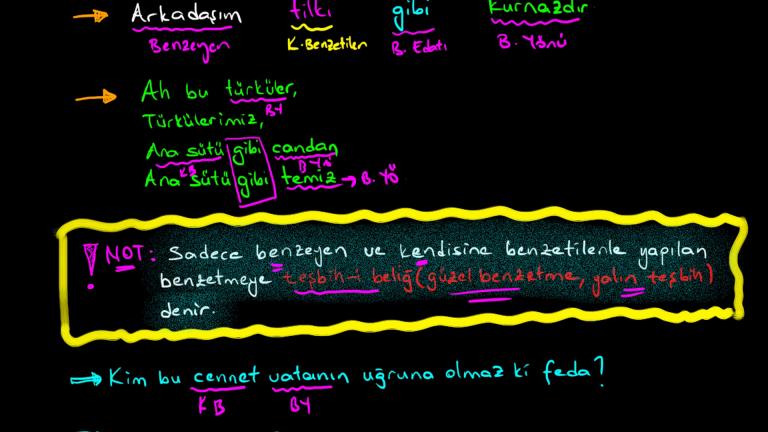 Arkadaşım tilki gibi kurnazdır
Benzeyen K.Benzetilen B. Edatı B. Yönü
Ah bu türküler,
BY
Türkülerimiz,
Ana sütü gibi candan
KB B Yö
Ana sütü gibi temiz → B. Yö
! NOT: Sadece benzeyen ve kendisine benzetilenle yapılan
benzetmeye teşbih-i beliğ (güzel benzetme, yalın teşbih)
denir.
⇒ Kim bu cennet vatanın uğruna olmaz ki feda?
KB BY